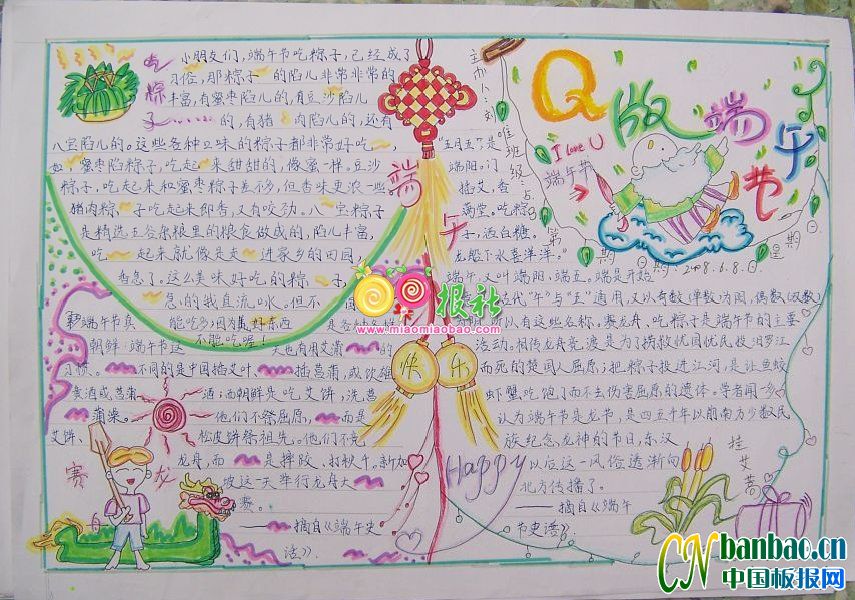 吃粽子
小朋友们，端午节吃粽子，已经成了
习俗，那粽子的陷儿非常非常的
丰富，有蜜枣陷儿的，有豆沙陷儿
的，有猪肉陷儿的，还有
八宝陷儿的。这些各种口味的粽子都非常好吃
如，蜜枣陷粽子，吃起来甜甜的，像蜜一样。豆沙
粽子，吃起来和蜜枣粽子差不多，但香味更浓一些。
猪肉粽子吃起来即香，又有咬劲。八宝粽子
是精选五谷杂粮里的粮食做成的，陷儿丰富，
吃起来就像是走进家乡的田园，
香急了。这么美味好吃的粽子，
的我直流口水。但不
能吃多，因为
不能吃喔！
端午节真
朝鲜：端午节这天也有用艾蒿的
习俗。不同的是中国插艾叶、插菖蒲，或饮雄
黄酒或菖蒲酒；而朝鲜是吃艾饼、洗菖
蒲澡。他们不祭屈原，而是
艾饼、松皮饼祭祖先。他们不赛
龙舟，而是摔胶、打秋千。新加
坡这一天举行龙舟大
赛。
——摘自《端午史
话》。
赛龙舟
端午
快乐
Happy
主办人：刘
班级
第
期
日期：2008.6.8.
星期日
Q版端午节
I love U
端午节
"五月五"是
端阳。门
插艾，香
满堂。吃粽
子，洒白糖。
龙船下水喜洋洋。
端午，又叫端阳、端五。端是开始
古代"午"与"五"通用，又以奇数(单数)为阳，偶数(双数)
所以有这些名称。赛龙舟、吃粽子是端午节的主要
活动。相传龙舟竞渡是为了拯救忧国忧民投汨罗江
而死的楚国人屈原；把粽子投进江河，是让鱼蛟
虾蟹吃饱了而不去伤害屈原的遗体。学者闻一多
认为端午节是龙节，是四五千年以前南方少数民
族纪念龙神的节日，东汉
以后这一风俗逐渐向
北方传播了。
——摘自《端午
节史话》。
挂艾蒿
报社
www.miaomiaobao.com
CN banbao.cn
中国板报网